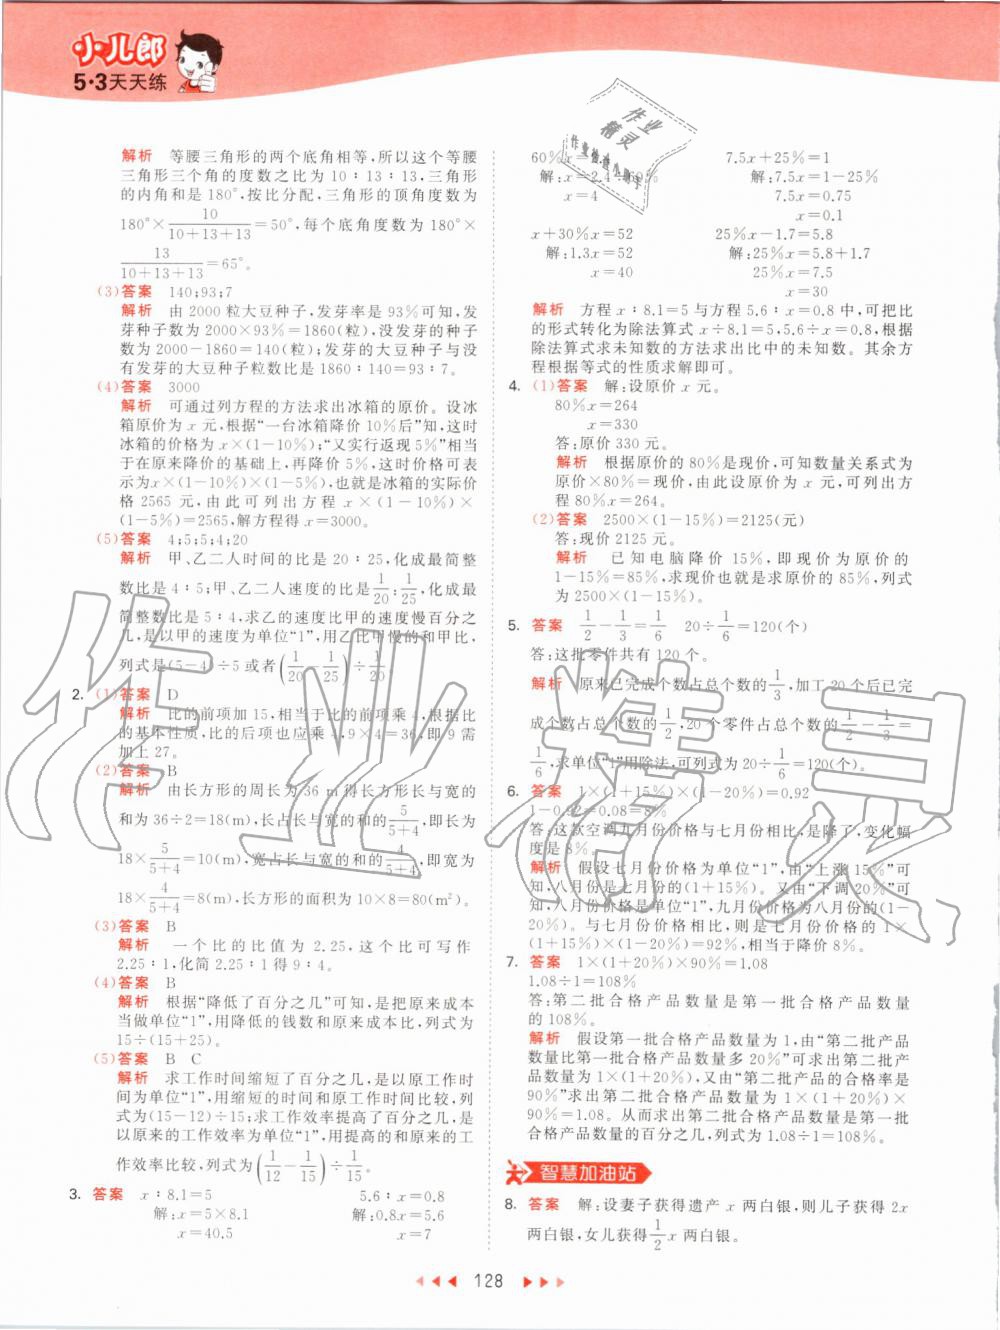 小儿郎
5·3天天练
解析 等腰三角形的两个底角相等,所以这个等腰
三角形三个角的度数之比为 10∶13∶13,三角形
的内角和是 180°,按比分配,三角形的顶角度数为
180°×10/(10+13+13)=50°,每个底角度数为 180°×
13/(10+13+13)=65°。
(3)答案 140;93;7
解析 由 2000 粒大豆种子,发芽率是 93%可知,发
芽种子数为 2000×93%=1860(粒),没发芽的种子
数为 2000-1860=140(粒);发芽的大豆种子与没
有发芽的大豆种子粒数比是 1860∶140=93∶7。
(4)答案 3000
解析 可通过列方程的方法求出冰箱的原价。设冰
箱原价为 x 元,根据“一台冰箱降价 10%后”知,这时
冰箱的价格为 x×(1-10%);“又实行返现 5%”相当
于在原来降价的基础上,再降价 5%,这时价格可表
示为x×(1-10%)×(1-5%),也就是冰箱的实际价
格 2565 元,由此可列出方程 x×(1-10%)×
(1-5%)=2565,解方程得 x=3000。
(5)答案 4;5;5;4;20
解析 甲、乙二人时间的比是 20∶25,化成最简整
数比是 4∶5;甲、乙二人速度的比是1/20∶1/25,化成最
简整数比是 5∶4;求乙的速度比甲的速度慢百分之
几,是以甲的速度为单位“1”,用乙比甲慢的和甲比,
列式是(5-4)÷5或者(1/20-1/25)÷1/20。
2. (1)答案 D
解析 比的前项加 15,相当于比的前项乘 4,根据比
的基本性质,比的后项也应乘 4,9×4=36,即 9 需
加上 27。
(2)答案 B
解析 由长方形的周长为 36 m得长方形长与宽的
和为 36÷2=18(m),长占长与宽的和的5/(5+4),即长为
18×5/(5+4)=10(m),宽占长与宽的和的4/(5+4),即宽为
18×4/(5+4)=8(m),长方形的面积为 10×8=80(m²)。
(3)答案 B
解析 一个比的比值为 2.25,这个比可写作
2.25∶1,化简 2.25∶1得 9∶4。
(4)答案 B
解析 根据“降低了百分之几”可知,是把原来成本
当做单位“1”,用降低的钱数和原来成本比,列式为
15÷(15+25)。
(5)答案 B C
解析 求工作时间缩短了百分之几,是以原工作时
间为单位“1”,用缩短的时间和原工作时间比较,列
式为(15-12)÷15;求工作效率提高了百分之几,是
以原来的工作效率为单位“1”,用提高的和原来的工
作效率比较,列式为(1/12-1/15)÷1/15。
3. 答案 x∶8.1=5 5.6∶x=0.8
解:x=5×8.1 解:0.8x=5.6
x=40.5 x=7
60%x=2.4 7.5x+25%=1
解:x=2.4÷60% 解:7.5x=1-25%
x=4 7.5x=0.75
x=0.1
x+30%x=52 25%x-1.7=5.8
解:1.3x=52 解:25%x=5.8+1.7
x=40 25%x=7.5
x=30
解析 方程 x∶8.1=5 与方程 5.6∶x=0.8 中,可把比
的形式转化为除法算式 x÷8.1=5,5.6÷x=0.8,根据
除法算式求未知数的方法求出比中的未知数。其余方
程根据等式的性质求解即可。
4. (1)答案 解:设原价 x 元。
80%x=264
x=330
答:原价 330 元。
解析 根据原价的 80%是现价,可知数量关系式为
原价×80%=现价,由此设原价为 x 元,可列出方
程 80%x=264。
(2)答案 2500×(1-15%)=2125(元)
答:现价 2125 元。
解析 已知电脑降价 15%,即现价为原价的
1-15%=85%,求现价也就是求原价的 85%,列式
为 2500×(1-15%)。
5. 答案 1/2-1/3=1/6 20÷1/6=120(个)
答:这批零件共有 120 个。
解析 原来已完成个数占总个数的1/3,加工 20 个后已完
成个数占总个数的1/2,20 个零件占总个数的1/2-1/3=
1/6,求单位“1”用除法,可列式为 20÷1/6=120(个)。
6. 答案 1×(1+15%)×(1-20%)=0.92
1-0.92=0.08=8%
答:这款空调九月份价格与七月份相比,是降了,变化幅
度是 8%。
解析 假设七月份价格为单位“1”,由“上涨 15%”可
知,八月份是七月份的(1+15%)。又由“下调 20%”可
知,八月份价格是单位“1”,九月份价格为八月份的(1-
20%)。与七月份价格相比,则是七月份的 1×
(1+15%)×(1-20%)=92%,相当于降价 8%。
7. 答案 1×(1+20%)×90%=1.08
1.08÷1=108%
答:第二批合格产品数量是第一批合格产品数量
的 108%。
解析 假设第一批合格产品数量为 1,由“第二批产品
数量比第一批合格产品数量多 20%”可求出第二批产
品数量为 1×(1+20%),又由“第二批产品的合格率是
90%”求出第二批合格产品数量为 1×(1+20%)×
90%=1.08。从而求出第二批合格产品数量是第一批
合格产品数量的百分之几,列式为 1.08÷1=108%。
智慧加油站
8. 答案 解:设妻子获得遗产 x 两白银,则儿子获得 2x
两白银,女儿获得1/2x 两白银。
128
作业精灵
作业
精灵